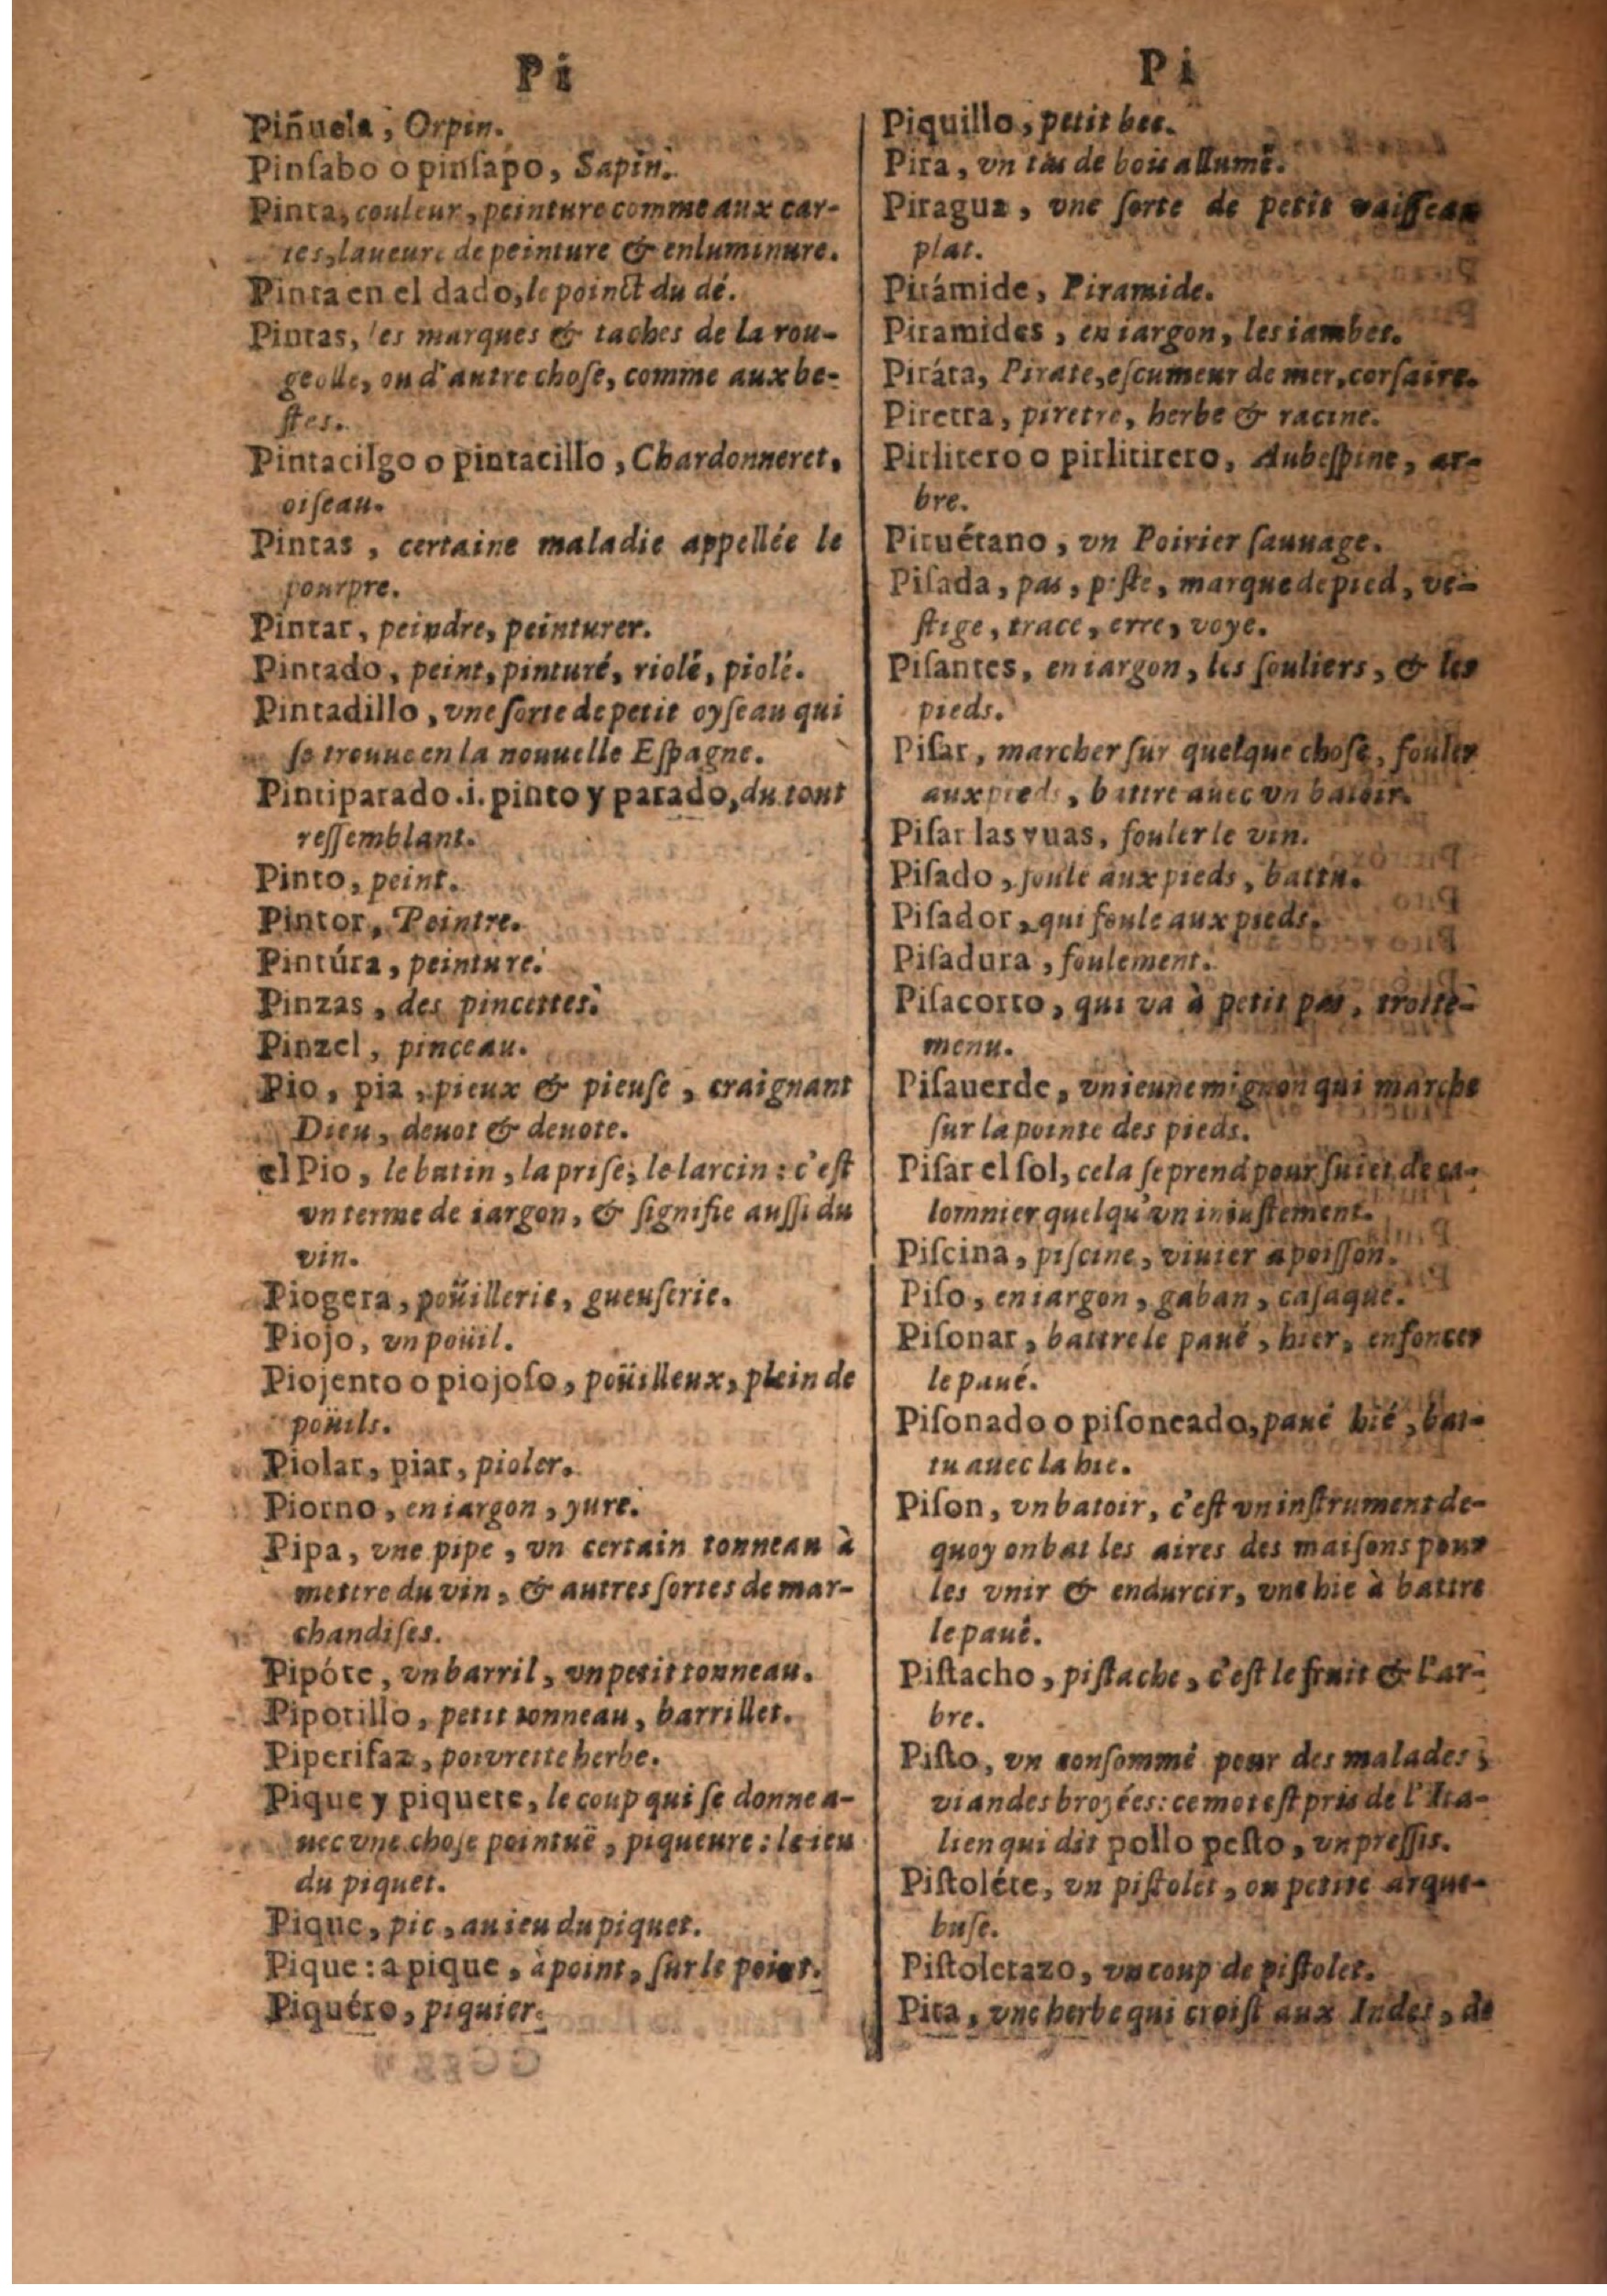 Pi
Piñuela, Orpin.
Pinſabo o pinſapo, Sapin.
Pinta, couleur, peinture comme aux car-
tes, laueure de peinture & enluminure.
Pinta en el dado, le poinct du dé.
Pintas, les marques & taches de la rou-
geolle, ou d'autre choſe, comme aux be-
ſtes.
Pintacilgo o pintacillo, Chardonneret,
oiſeau.
Pintas, certaine maladie appellée le
pourpre.
Pintar, peindre, peinturer.
Pintado, peint, pinturé, riolé, piolé.
Pintadillo, vne ſorte de petit oyſeau qui
ſe trouue en la nouuelle Eſpagne.
Pintiparado .i. pinto y parado, du tout
reſſemblant.
Pinto, peint.
Pintor, Peintre.
Pintúra, peinture.
Pinzas, des pincettes.
Pinzel, pinceau.
Pio, pia, pieux & pieuſe, craignant
Dieu, deuot & deuote.
el Pio, le butin, la priſe, le larcin: c'eſt
vn terme de iargon, & ſignifie auſſi du
vin.
Piogera, poüillerie, gueuſerie.
Piojo, vn poüil.
Piojento o piojoſo, poüilleux, plein de
poüils.
Piolar, piar, pioler.
Piorno, en iargon, yure.
Pipa, vne pipe, vn certain tonneau à
mettre du vin, & autres ſortes de mar-
chandiſes.
Pipóte, vn barril, vn petit tonneau.
Pipotillo, petit tonneau, barrillet.
Piperifaz, poivrette herbe.
Pique y piquete, le coup qui ſe donne a-
uec vne choſe pointuë, piqueure: le ieu
du piquet.
Pique, pic, au ieu du piquet.
Pique: a pique, à point, ſur le point.
Piquéro, piquier.
Pi
Piquillo, petit bec.
Pira, vn tas de bois allumé.
Piragua, vne ſorte de petit vaiſſeau
plat.
Pirámide, Piramide.
Piramides, en iargon, les iambes.
Piráta, Pirate, eſcumeur de mer, corſaire.
Piretra, piretre, herbe & racine.
Pirlitero o pirlitirero, Aubeſpine, ar-
bre.
Piruétano, vn Poirier ſauuage.
Piſada, pas, piſte, marque de pied, ve-
ſtige, trace, erre, voye.
Piſantes, en iargon, les ſouliers, & les
pieds.
Piſar, marcher ſur quelque choſe, fouler
aux pieds, battre auec vn batoir.
Piſar las vuas, fouler le vin.
Piſado, foulé aux pieds, battu.
Piſador, qui foule aux pieds.
Piſadura, foulement.
Piſacorto, qui va à petit pas, trotte-
menu.
Piſauerde, vn ieune mignon qui marche
ſur la pointe des pieds.
Piſar el ſol, cela ſe prend pour ſuiet de ca-
lomnier quelqu'vn iniuſtement.
Piſcina, piſcine, viuier a poiſſon.
Piſo, en iargon, gaban, caſaque.
Piſonar, battre le paué, hier, enfoncer
le paué.
Piſonado o piſoneado, paué hié, bat-
tu auec la hie.
Piſon, vn batoir, c'eſt vn inſtrument de-
quoy on bat les aires des maiſons pour
les vnir & endurcir, vne hie à battre
le paué.
Piſtacho, piſtache, c'eſt le fruit & l'ar-
bre.
Piſto, vn conſommé pour des malades,
viandes broyées: ce mot eſt pris de l'Ita-
lien qui dit pollo peſto, vn preſſis.
Piſtoléte, vn piſtolet, ou petite arque-
buſe.
Piſtoletazo, vn coup de piſtolet.
Pita, vne herbe qui croiſt aux Indes, de